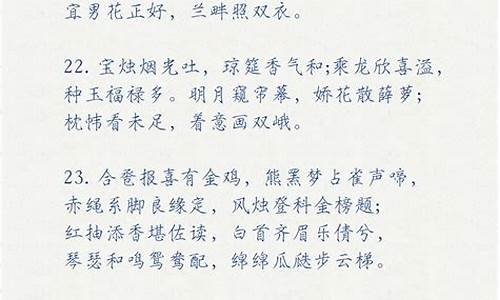 宜男花正好，兰畔照双衣。
22. 宝烛烟光吐，琼筵香气和;乘龙欣喜溢，
种玉福禄多。明月窥帘幕，娇花散薜萝；
枕帏看未足，着意画双峨。
23. 合卺报喜有金鸡，熊黑梦占雀声啼，
赤绳系脚良缘定，风烛登科金榜题；
红抽添香堪佐读，白首齐眉乐倩兮，
琴瑟和鸣鸳鸯配，绵绵瓜瓞步云梯。